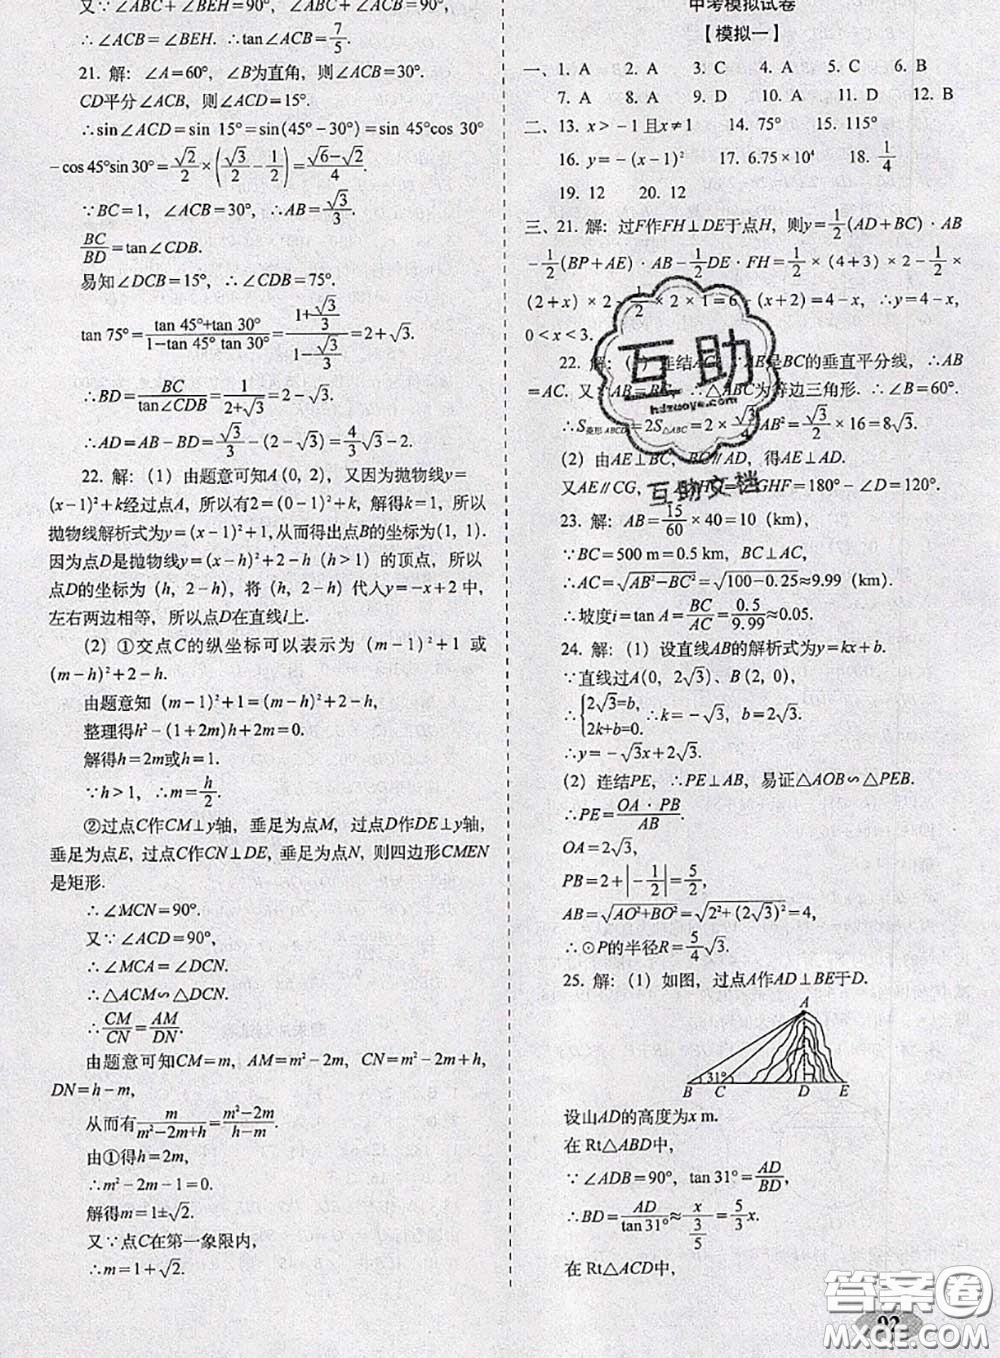 又∵∠ABC+∠BEH=90°, ∠ABC+∠ACB=90°,
∴∠ACB=∠BEH. ∴tan∠ACB=7/5.
21. 解: ∠A=60°, ∠B为直角, 则∠ACB=30°.
CD平分∠ACB, 则∠ACD=15°.
∴sin∠ACD=sin 15°=sin(45°-30°)=sin 45°cos 30°
-cos 45°sin 30°=√2/2×(√3/2-1/2)=(√6-√2)/4.
∵BC=1, ∠ACB=30°, ∴AB=√3/3.
BC/BD=tan∠CDB.
易知∠DCB=15°, ∴∠CDB=75°.
tan 75°=(tan 45°+tan 30°)/(1-tan 45° tan 30°)=(1+√3/3)/(1-√3/3)=2+√3.
∴BD=BC/tan∠CDB=1/(2+√3)=2-√3.
∴AD=AB-BD=√3/3-(2-√3)=4/3√3-2.
22. 解: (1) 由题意可知A(0, 2), 又因为抛物线y=
(x-1)²+k经过点A, 所以有2=(0-1)²+k, 解得k=1, 所以
抛物线解析式为y=(x-1)²+1,从而得出点B的坐标为(1, 1).
因为点D是抛物线y=(x-h)²+2-h (h>1) 的顶点, 所以
点D的坐标为 (h, 2-h), 将 (h, 2-h) 代入y=-x+2中,
左右两边相等, 所以点D在直线l上.
(2) ①交点C的纵坐标可以表示为 (m-1)²+1 或
(m-h)²+2-h.
由题意知 (m-1)²+1=(m-h)²+2-h,
整理得h²-(1+2m)h+2m=0.
解得h=2m或h=1.
∵h>1, ∴m=h/2.
②过点C作CM⊥y轴, 垂足为点M, 过点D作DE⊥y轴,
垂足为点E, 过点C作CN⊥DE, 垂足为点N, 则四边形CMEN
是矩形.
∴∠MCN=90°.
又∵∠ACD=90°,
∴∠MCA=∠DCN.
∴△ACM∽△DCN.
∴CM/CN=AM/DN.
由题意可知CM=m, AM=m²-2m, CN=m²-2m+h,
DN=h-m,
从而有m/(m²-2m+h)=(m²-2m)/(h-m).
由①得h=2m,
∴m²-2m-1=0.
解得m=1±√2.
又∵点C在第一象限内,
∴m=1+√2.
中考模拟试卷
【模拟一】
一、1. A 2. A 3. C 4. A 5. C 6. B
7. A 8. A 9. D 10. A 11. D 12. B
二、13. x>-1且x≠1 14. 75° 15. 115°
16. y=-(x-1)² 17. 6.75×10⁴ 18. 1/4
19. 12 20. 12
三、21. 解: 过F作FH⊥DE于点H, 则y=1/2(AD+BC)·AB
-1/2(BP+AE)·AB-1/2DE·FH=1/2×(4+3)×2-1/2×
(2+x)×2-1/2×2×1=6-(2+x)=4-x, ∴y=4-x,
0<x<3.
22. 解: 连结AC, ∵AE是BC的垂直平分线, ∴AB
=AC. 又∵AB=BC. ∴△ABC为等边三角形. ∴∠B=60°.
∴S菱形ABCD=2S△ABC=2×√3/4AB²=√3/2×16=8√3.
(2) 由AE⊥BC, BC∥AD, 得AE⊥AD.
又AE∥CG, GHF=180°-∠D=120°.
23. 解: AB=15/60×40=10 (km),
∵BC=500 m=0.5 km, BC⊥AC,
∴AC=√(AB²-BC²)=√(100-0.25)≈9.99 (km).
∴坡度i=tan A=BC/AC=0.5/9.99≈0.05.
24. 解: (1) 设直线AB的解析式为y=kx+b.
∵直线过A(0, 2√3)、B(2, 0),
∴{2√3=b, 2k+b=0. ∴k=-√3, b=2√3.
∴y=-√3x+2√3.
(2) 连结PE, ∴PE⊥AB, 易证△AOB∽△PEB.
∴PE=OA·PB/AB.
OA=2√3,
PB=2+|-1/2|=5/2,
AB=√(AO²+BO²)=√(2²+(2√3)²)=4,
∴⊙P的半径R=5/4√3.
25. 解: (1) 如图, 过点A作AD⊥BE于D.
A
31°
B C D E
设山AD的高度为x m.
在 Rt△ABD中,
∵∠ADB=90°, tan 31°=AD/BD,
∴BD=AD/tan 31°≈x/(3/5)=5/3x.
在 Rt△ACD中,
互助
hdzuoye.com
互助文档
答案圈
MXQE.COM
92